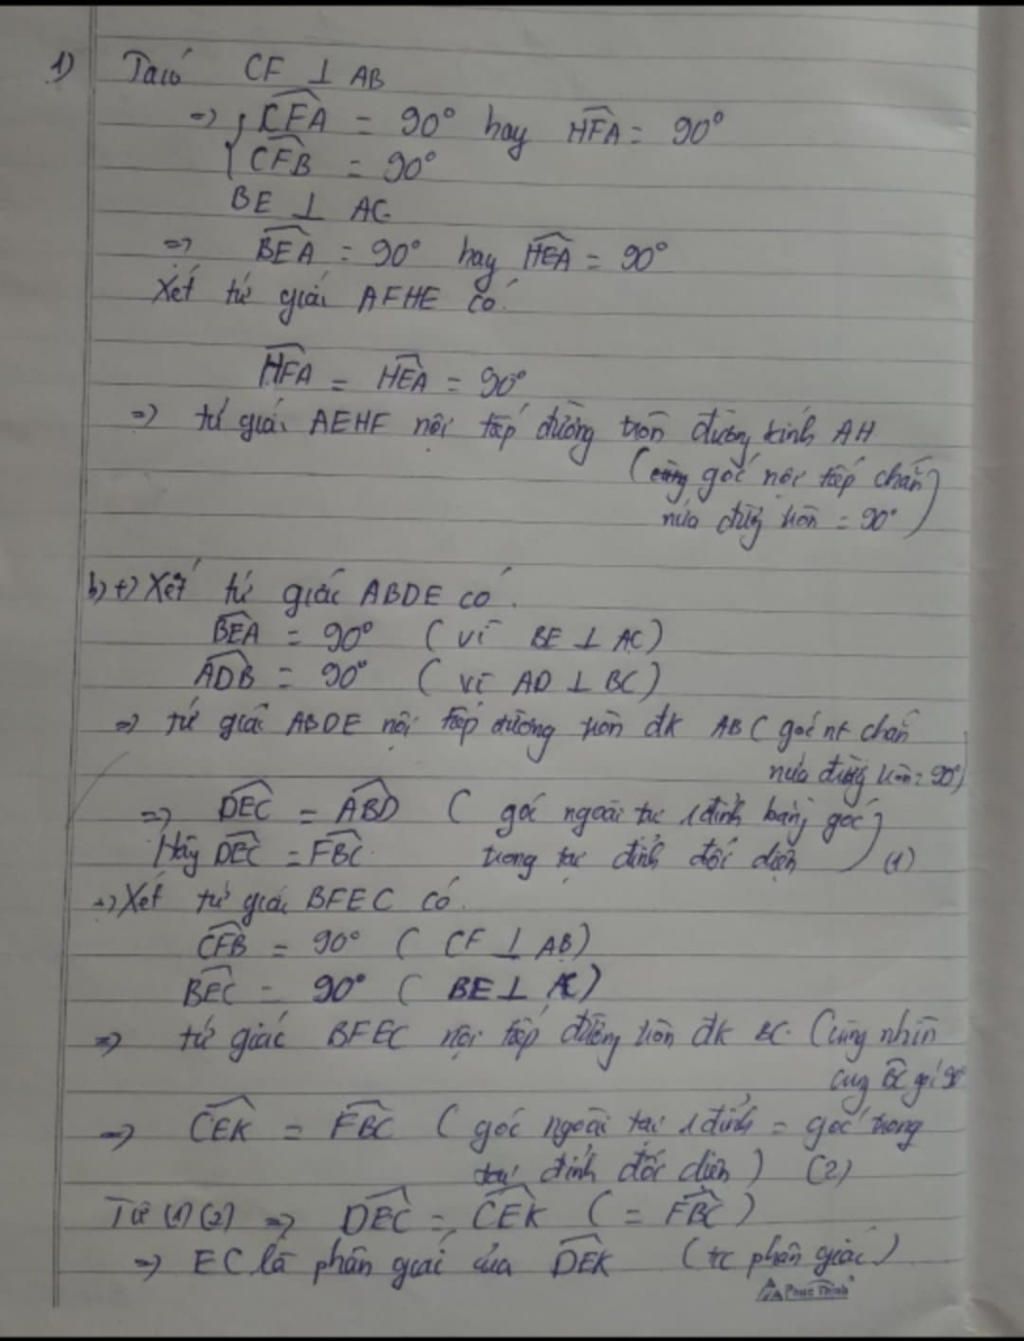 1) Ta có CF ⊥ AB
=> { CFA = 90° hay HFA = 90°
{ CFB = 90°
BE ⊥ AC
=> BEA = 90° hay HEA = 90°
Xét tứ giác AFHE có:
HFA = HEA = 90°
=> tứ giác AEHF nội tiếp đường tròn đường kính AH
( góc nội tiếp chắn
nửa đường tròn = 90° )
b) +) Xét tứ giác ABDE có:
BEA = 90° ( vì BE ⊥ AC )
ADB = 90° ( vì AD ⊥ BC )
=> tứ giác ABDE nội tiếp đường tròn đk AB ( góc nt chắn
nửa đường tròn = 90° )
=> DEC = ABD ( góc ngoài tại 1 đỉnh bằng góc
Hay DEC = FBC trong tại đỉnh đối diện ) (1)
+) Xét tứ giác BFEC có:
CFB = 90° ( CF ⊥ AB )
BEC = 90° ( BE ⊥ AC )
=> tứ giác BFEC nội tiếp đường tròn đk BC. ( cùng nhìn
cung BC góc 90°
=> CEK = FBC ( góc ngoài tại 1 đỉnh = góc trong
tại đỉnh đối diện ) (2)
Từ (1) (2) => DEC = CEK ( = FBC )
=> EC là phân giác của DEK ( tc phân giác )
Phuc Thinh